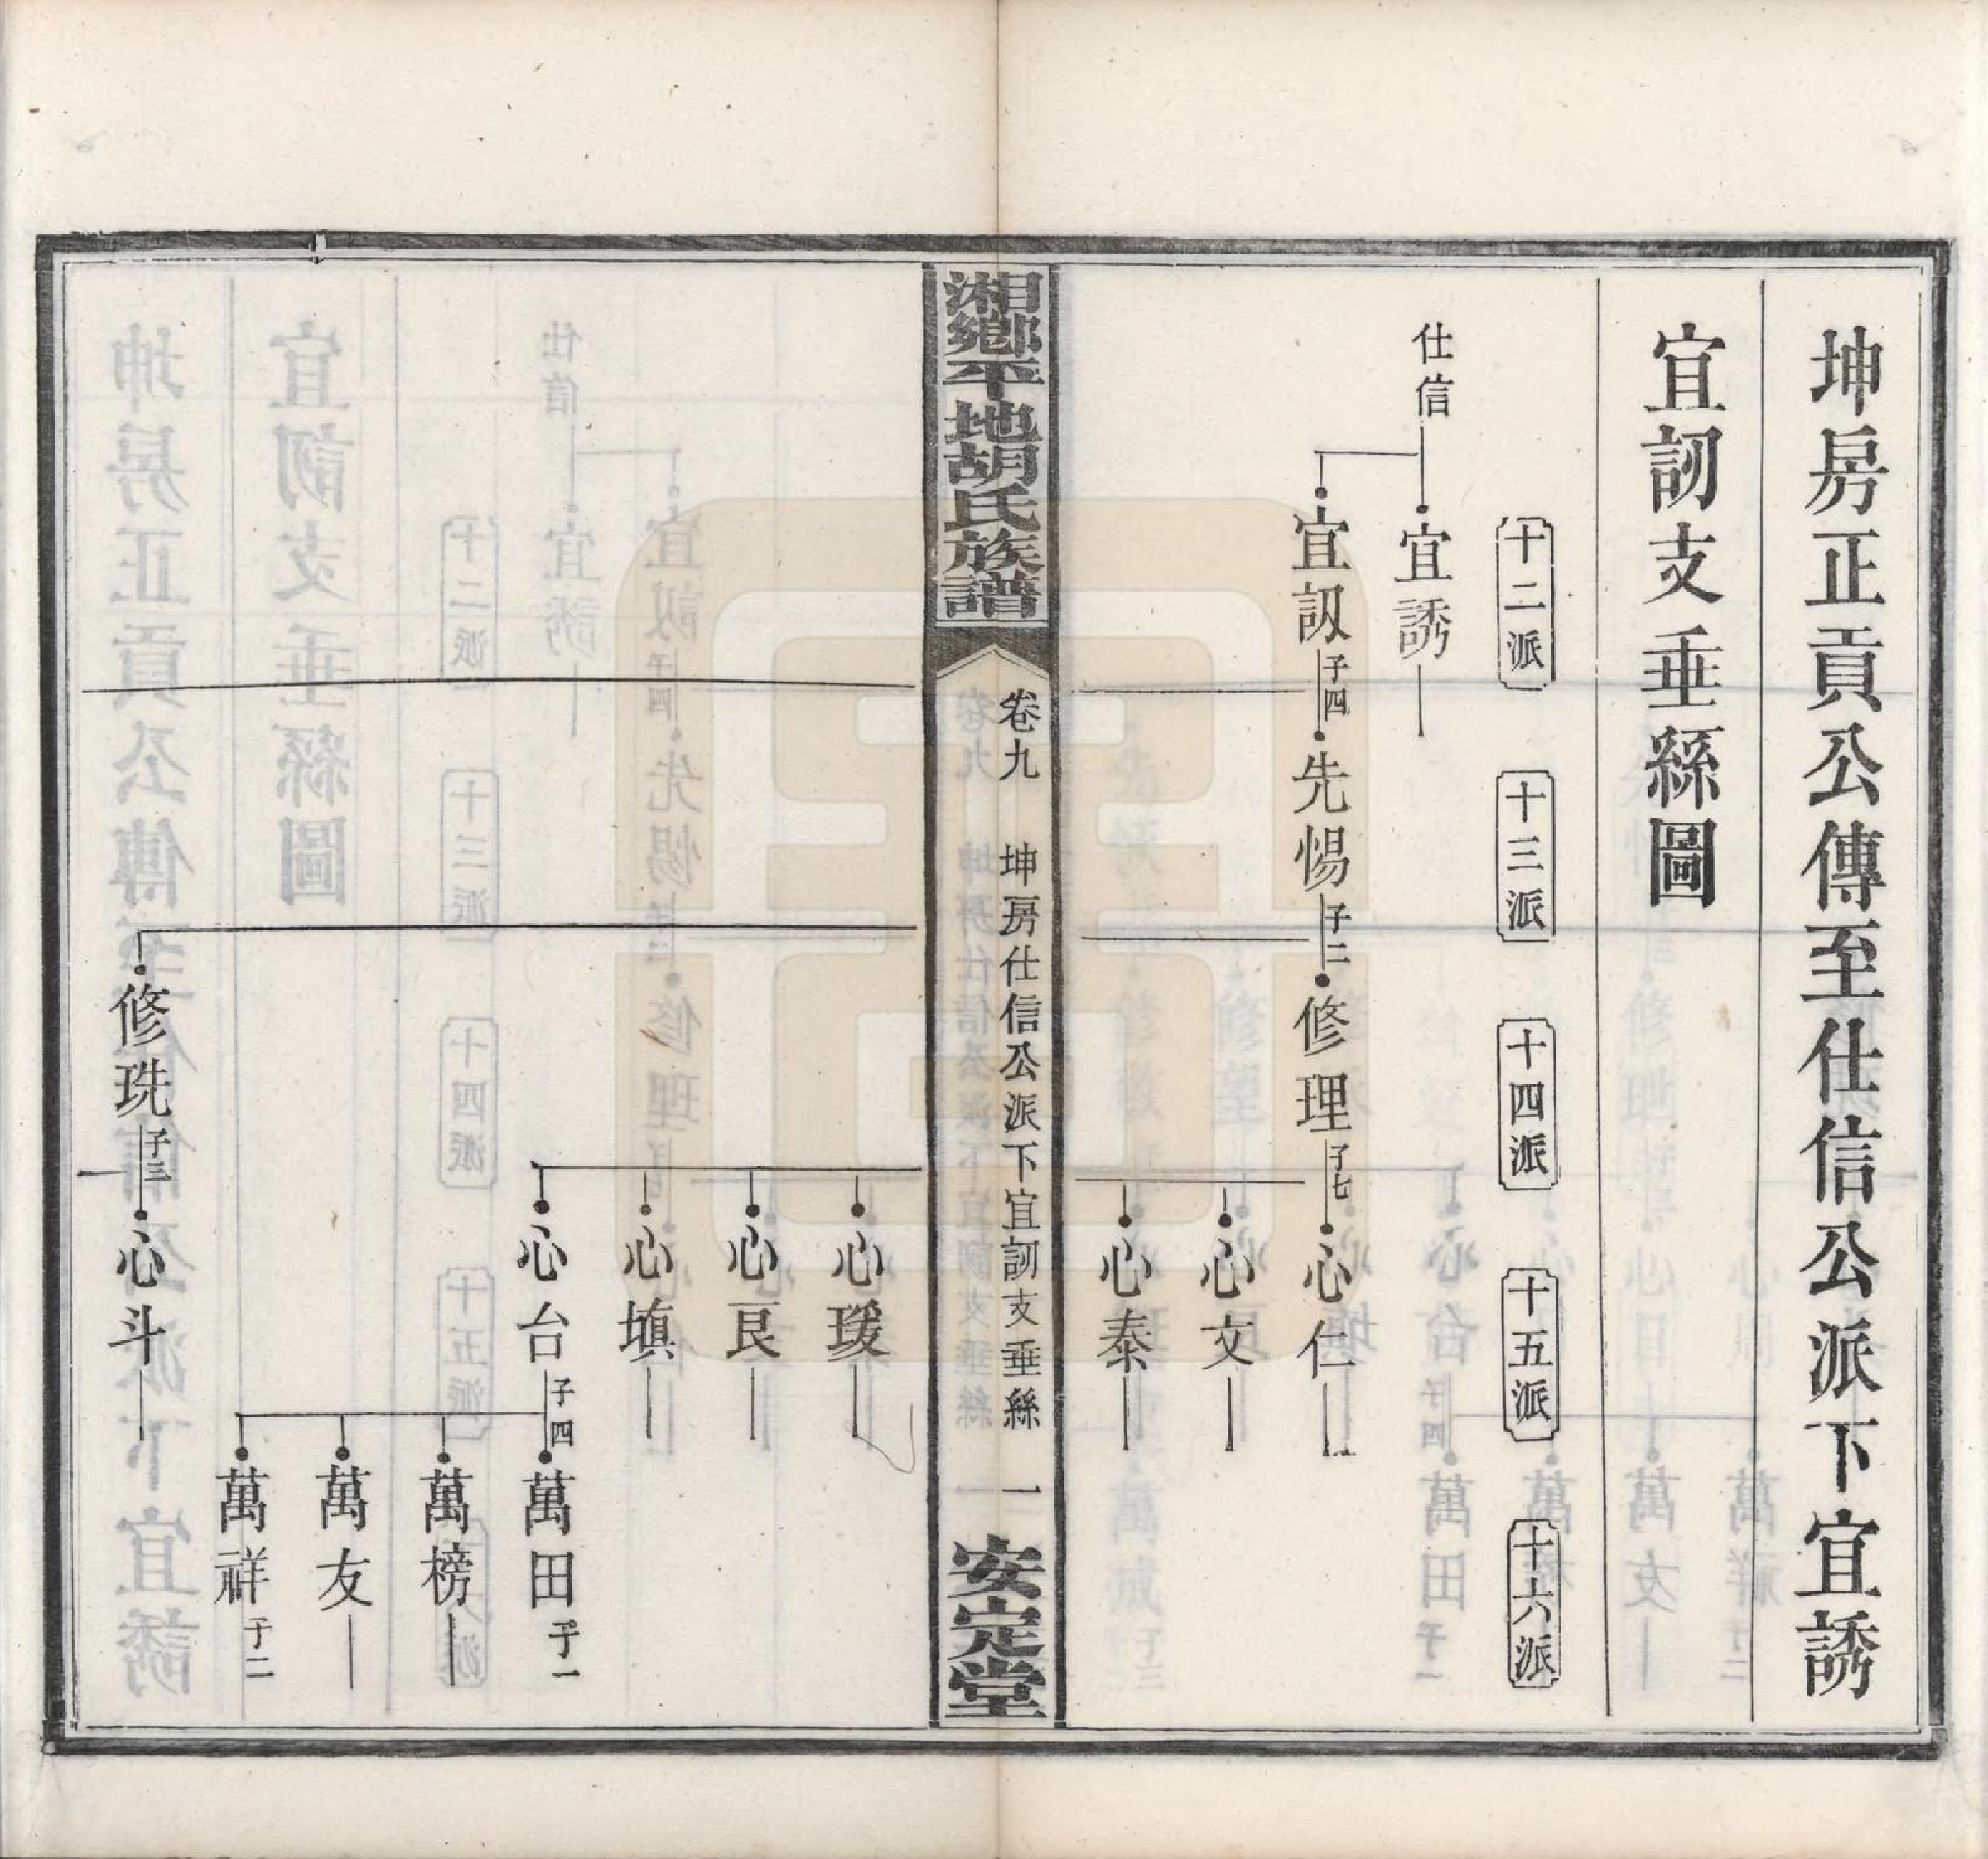 坤房正貢公傳至仕信公派下宜誘
宜訒支垂絲圖
十二派
十三派
十四派
十五派
十六派
仕信
宜誘
宜訒 子四
先惕 子二
修理 子七
心仁
心文
心泰
湘鄉平地胡氏族譜
卷九
坤房仕信公派下宜訒支垂絲
一
安定堂
心瑗
心艮
心塡
心台 子四
萬田 子一
萬榜
萬友
萬祥 子二
修珗 子三
心斗